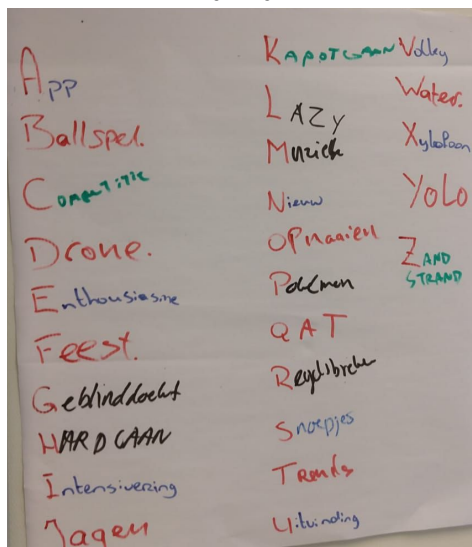 App
Ballspel.
Competitie
Drone.
Enthousiasme
Feest.
Geblinddoekt
HARDGAAN
Intensivering
Jagen
KAPOTGAAN
LAZY
Muziek
Nieuw
OPnaaien
Pokemon
QAT
Snoepjes
Trends
Uitvinding
Volley
Water.
Xylofoon
YOLO
ZAND
STRAND